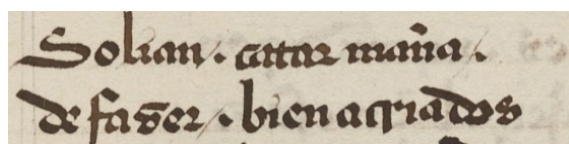 Solian · catar man̄a ·
de fazer · bien a criados